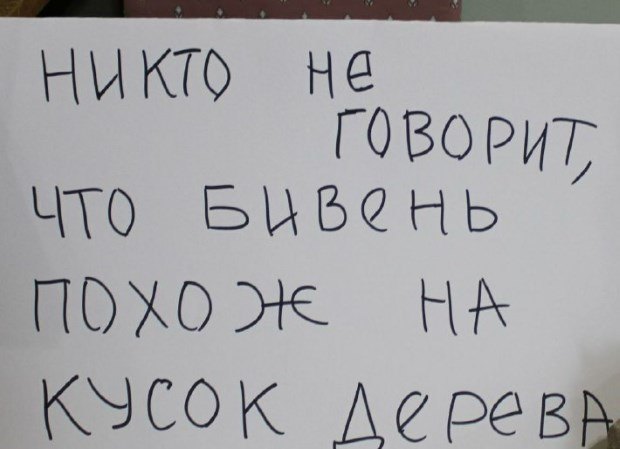 НИКТО НЕ
ГОВОРИТ,
ЧТО БИВЕНЬ
ПОХОЖ НА
КУСОК ДЕРЕВА